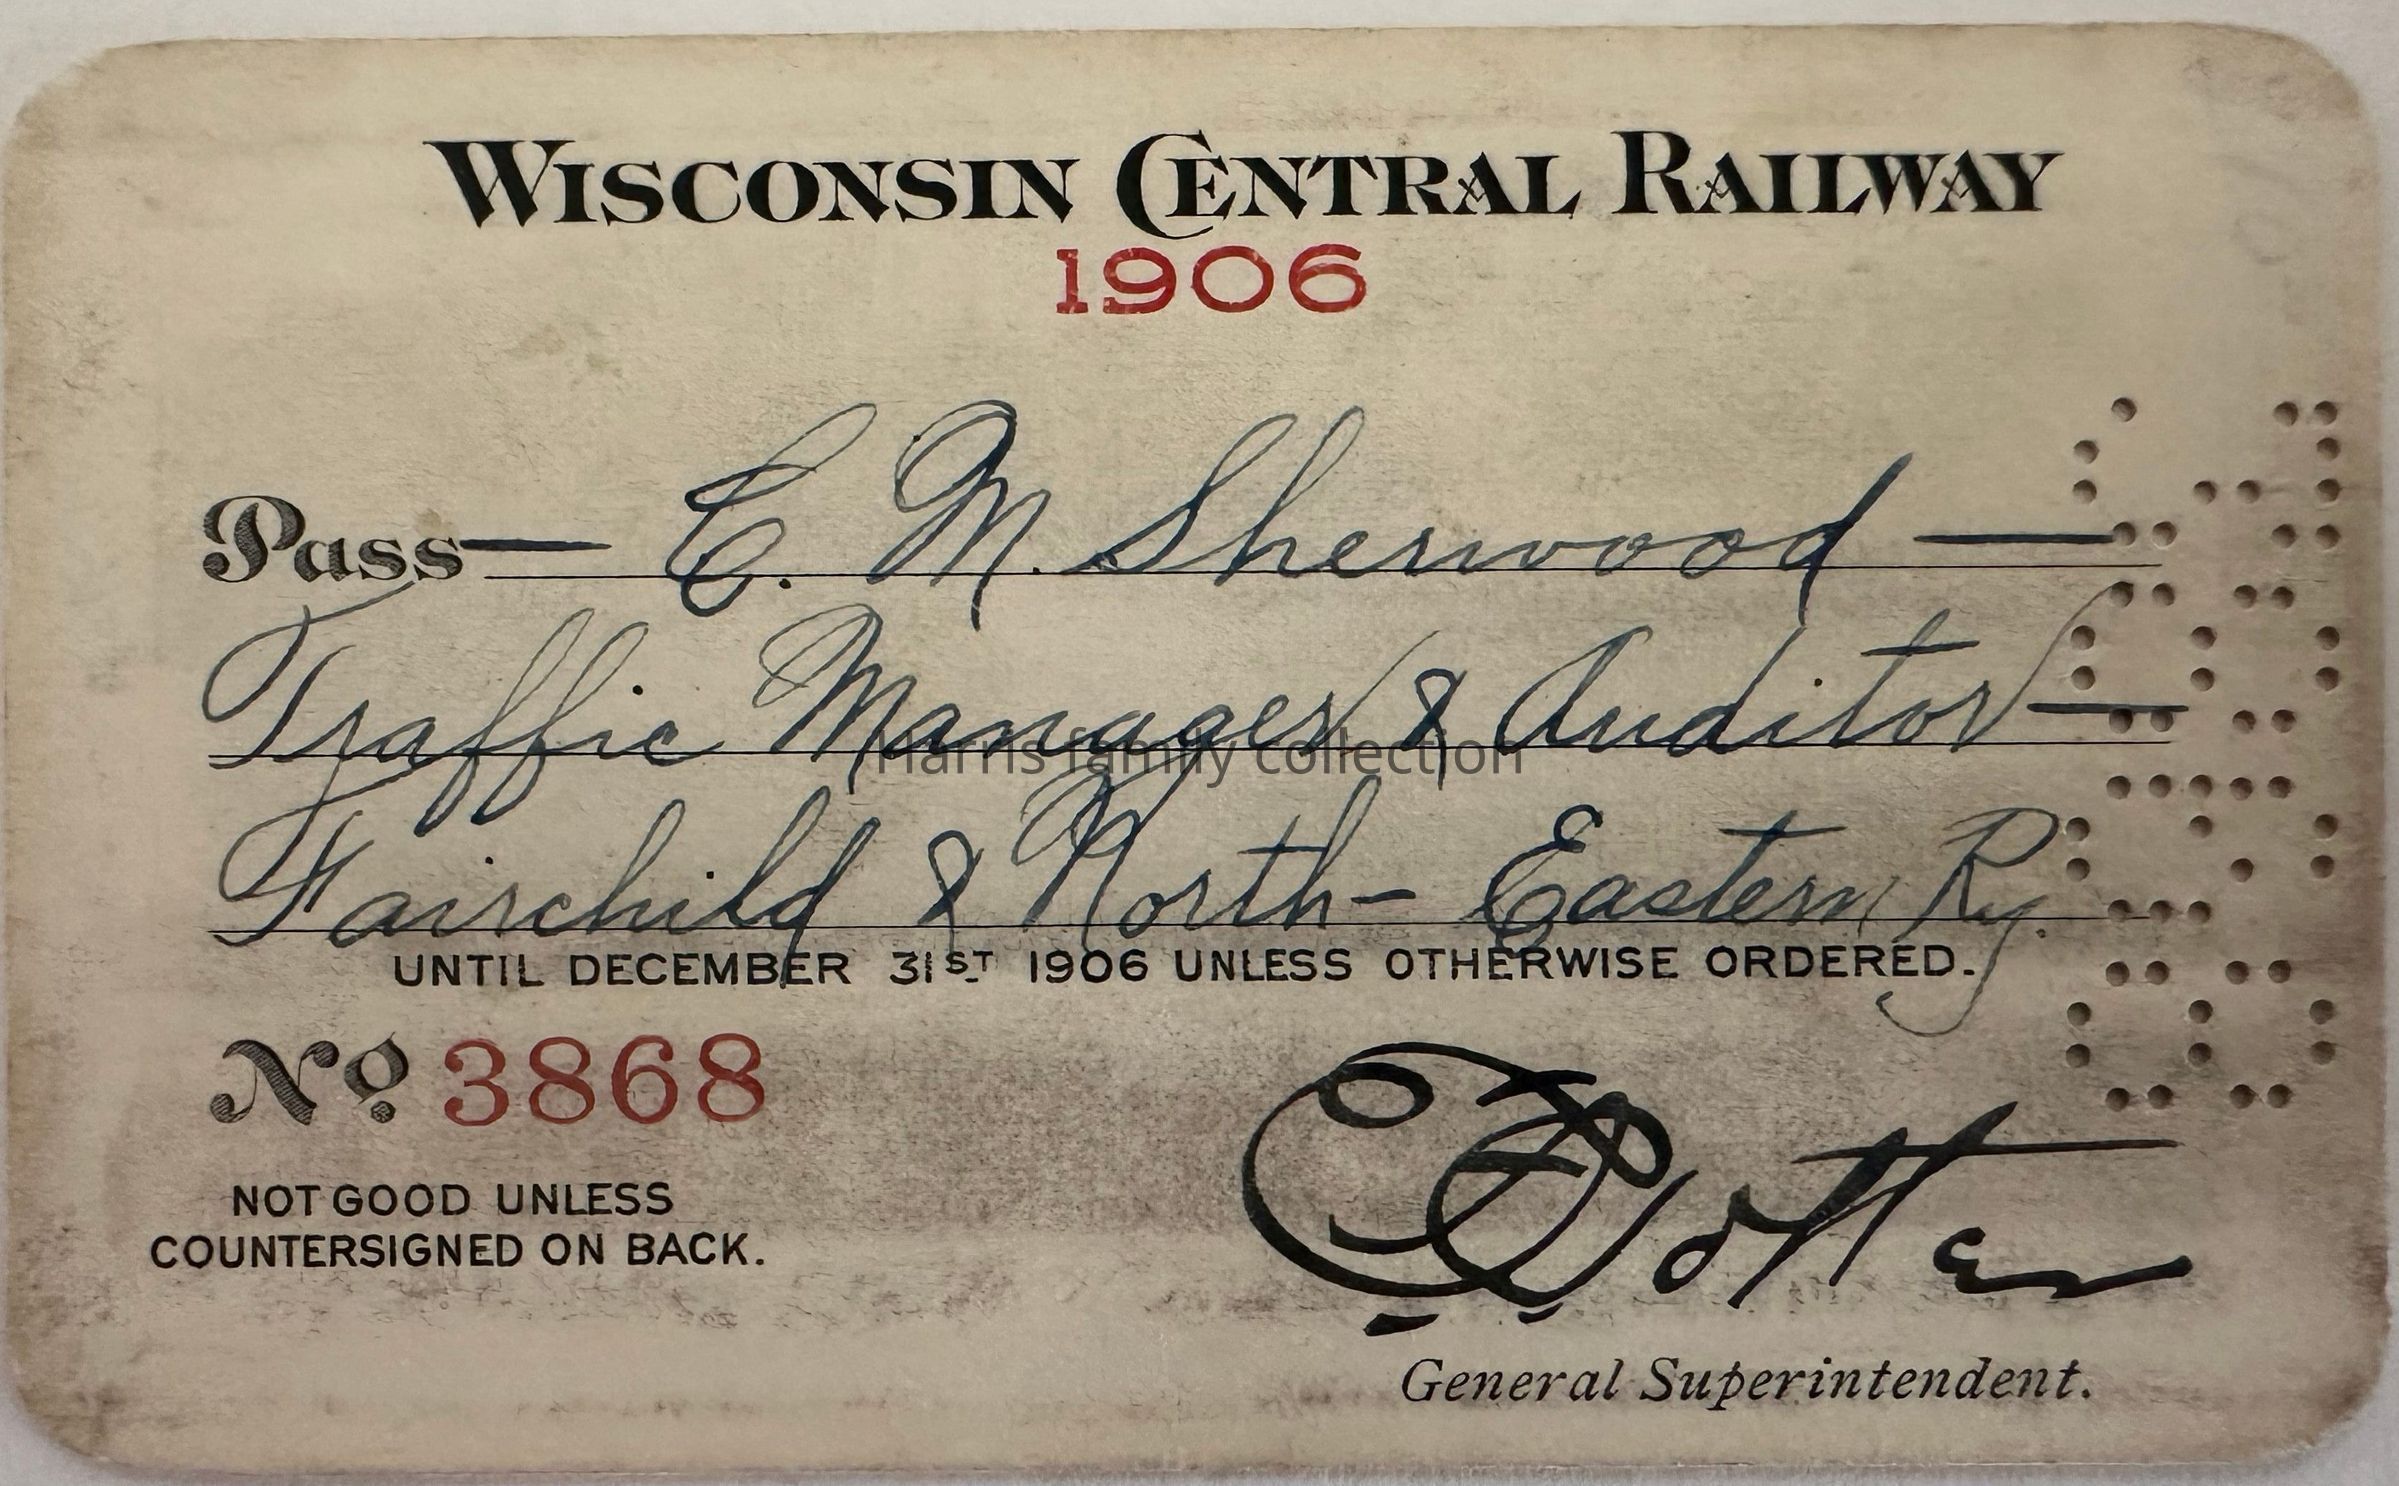 WISCONSIN CENTRAL RAILWAY
1906
Pass — E. M. Sherwood —
Traffic Manager & Auditor —
Fairchild & North-Eastern Ry.
UNTIL DECEMBER 31ST 1906 UNLESS OTHERWISE ORDERED.
No 3868
NOT GOOD UNLESS
COUNTERSIGNED ON BACK.
Potter
General Superintendent.
Harris family collection